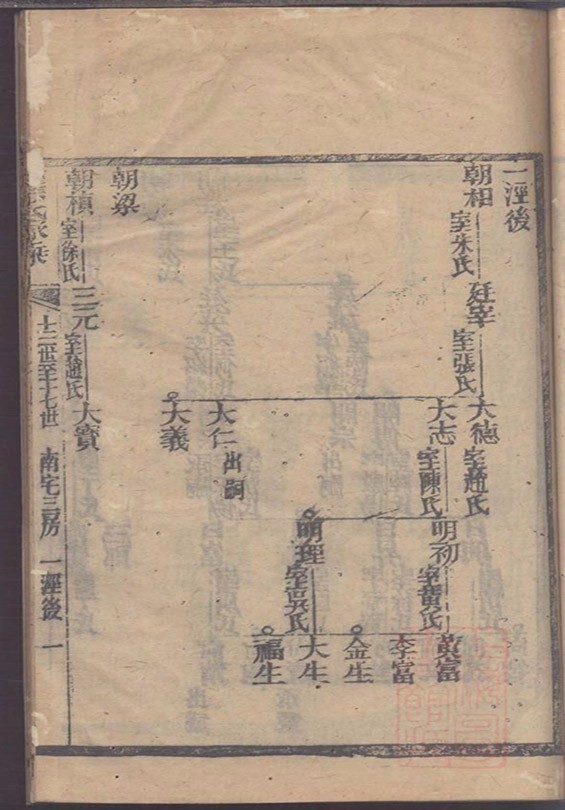 一涇後
朝相
室朱氏
廷宰
室張氏
大德
室趙氏
大志
室陳氏
明初
室黄氏
黄富
李富
金生
明理
室吳氏
大生
福生
大仁
出嗣
大義
朝梁
朝楨
室徐氏
三元
室趙氏
大寶
十二世至十七世
南宅三房
一涇後
一